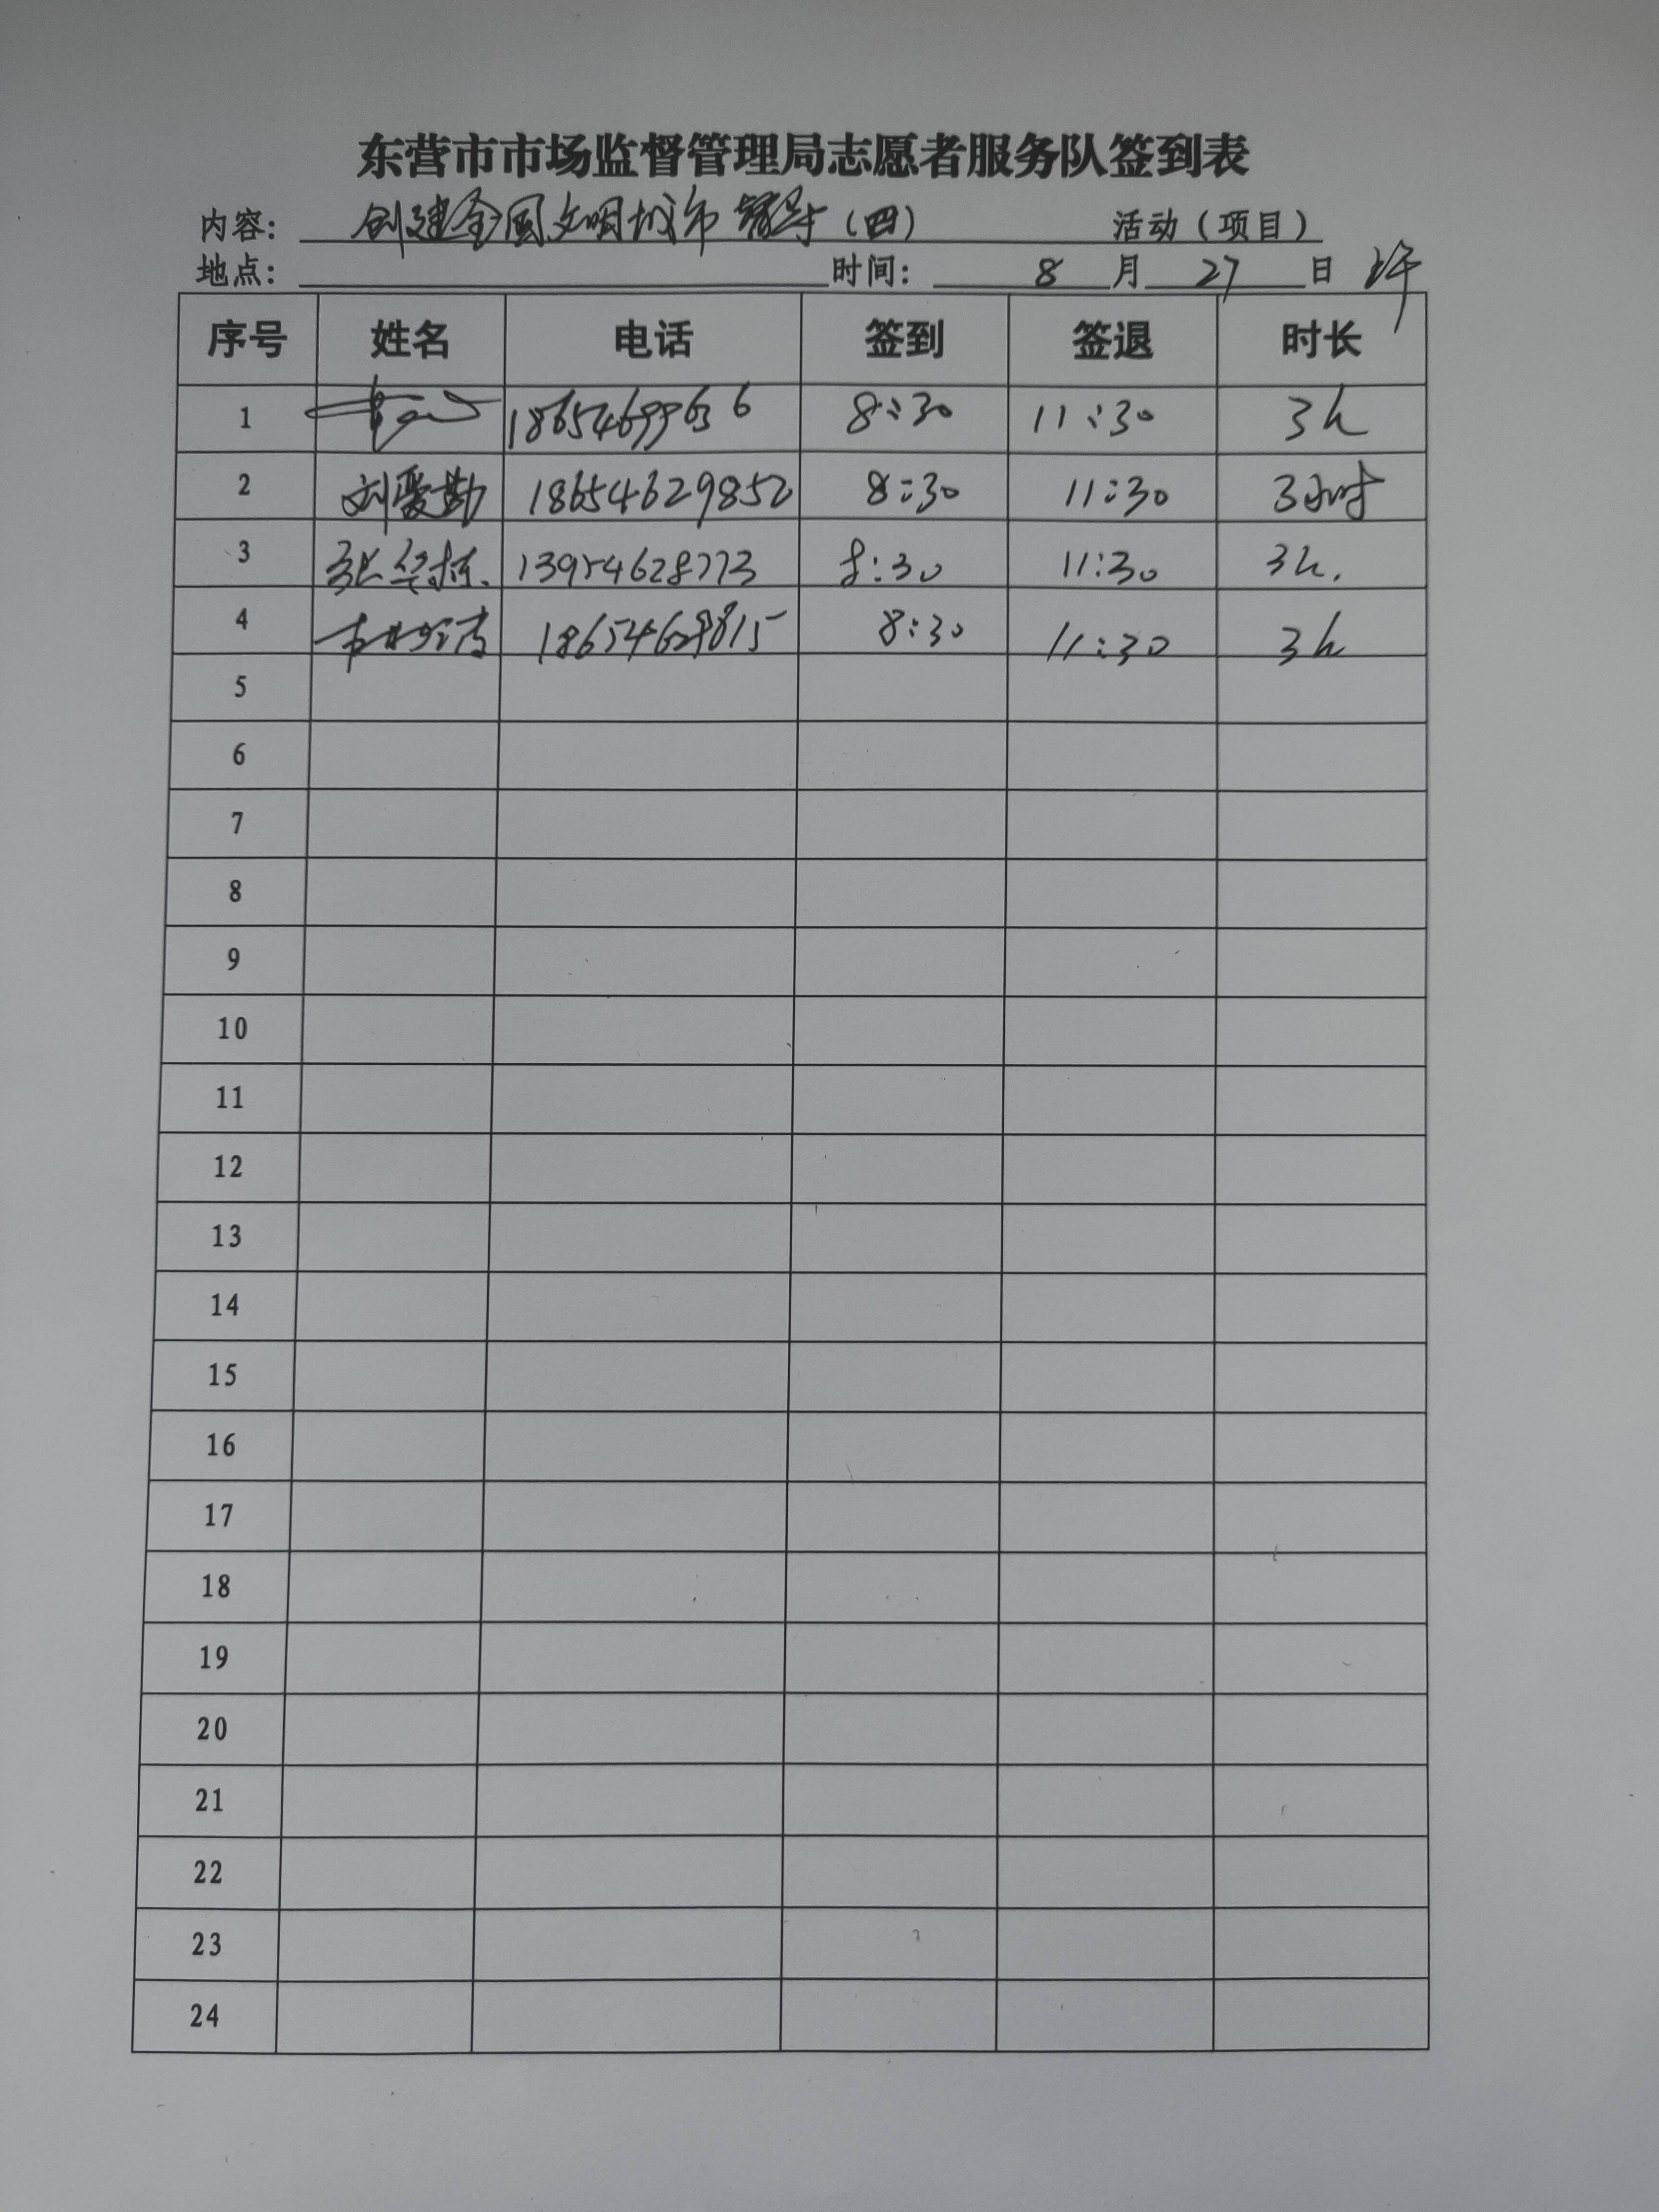 东营市市场监督管理局志愿者服务队签到表
内容: 创建全国文明城市督导(四) 活动(项目)
地点: 时间: 8 月 27 日 上午
序号 姓名 电话 签到 签退 时长
1 18654699636 8:30 11:30 3h
2 刘爱勤 18654629852 8:30 11:30 3小时
3 张华栋 13954628773 8:30 11:30 3h.
4 18654629815 8:30 11:30 3h
5
6
7
8
9
10
11
12
13
14
15
16
17
18
19
20
21
22
23
24